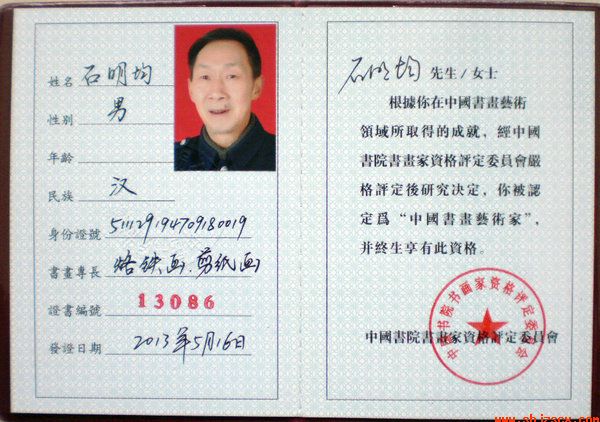 姓名 石明均
性別 男
年齡
民族 汉
身份證號 511129194709180019
書畫專長 烙铁画、剪纸画
證書編號 13086
發證日期 2013年5月16日
石明均 先生/女士
根據你在中國書畫藝術
領域所取得的成就，經中國
書院書畫家資格評定委員會嚴
格評定後研究決定，你被認
定爲“中國書畫藝術家”，
并終生享有此資格。
中國書院書畫家資格評定委員會
中国书院书画家资格评定委员会